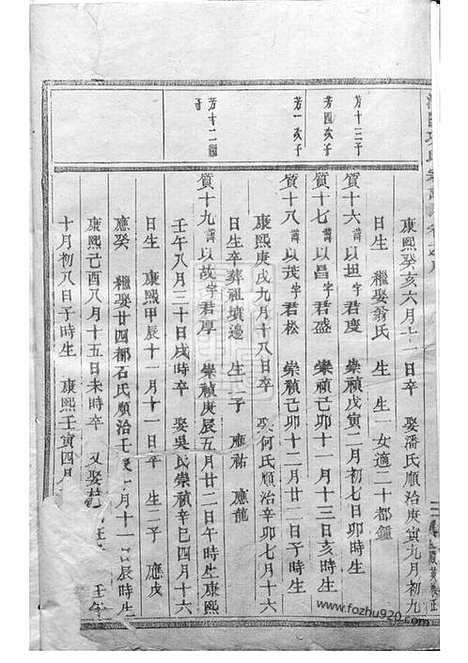 康熙癸亥六月十一日卒　娶潘氏順治庚寅九月初九
日生　繼娶翁氏　生　生一女適二十都鍾
芳十三子
質十六諱以坦字君度　崇禎戊寅二月初七日卯時生
芳四次子
質十七諱以昌字君盛　崇禎己卯十一月十三日亥時生
芳一次子
質十八諱以茂字君松　崇禎己卯十二月廿二日子時生
康熙庚戌九月十八日卒　娶何氏順治辛卯七月十六
日生卒葬祖墳邊　生二子　應祐　應龍
芳十二繼子
質十九諱以故字君厚　崇禎庚辰五月廿二日午時生康熙
壬午八月三十日戌時卒　娶吳氏崇禎辛巳四月十六
日生　康熙甲辰十一月十一日卒　生二子　應戊
應癸　繼娶廿四都石氏順治壬　月十一　辰時生
康熙己酉八月十五日未時卒　又娶
十月初八日子時生　康熙壬寅四月
www.fozhu920.com